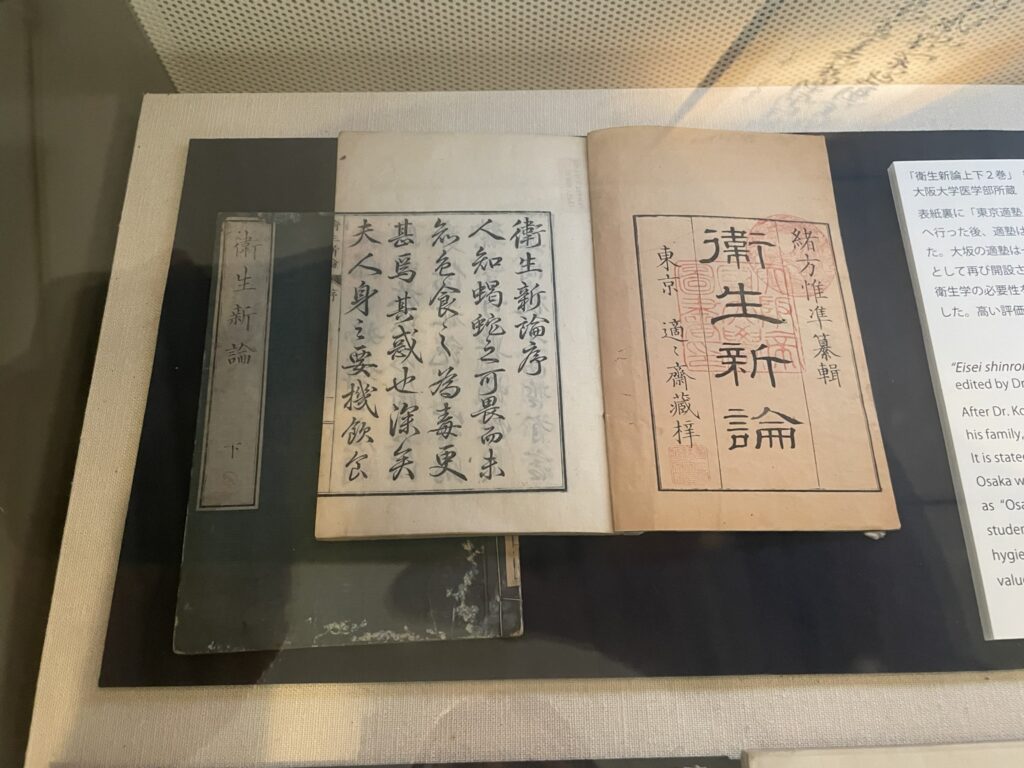 緒方惟準纂輯
衛生新論
東京 適〻齋藏梓
衛生新論序
人知蝎蛇之可畏而未
知色食之為毒更
甚焉其惑也深矣
夫人身之要機飲食
衛生新論 下
「衛生新論上下２巻」
大阪大学医学部所蔵
表紙裏に「東京適塾
へ行った後、適塾は
た。大坂の適塾は
として再び開設さ
衛生学の必要性を
した。高い評価
"Eisei shinron
edited by Dr
After Dr. Ko
his family,
It is state
Osaka w
as "Osa
studen
hygie
valu